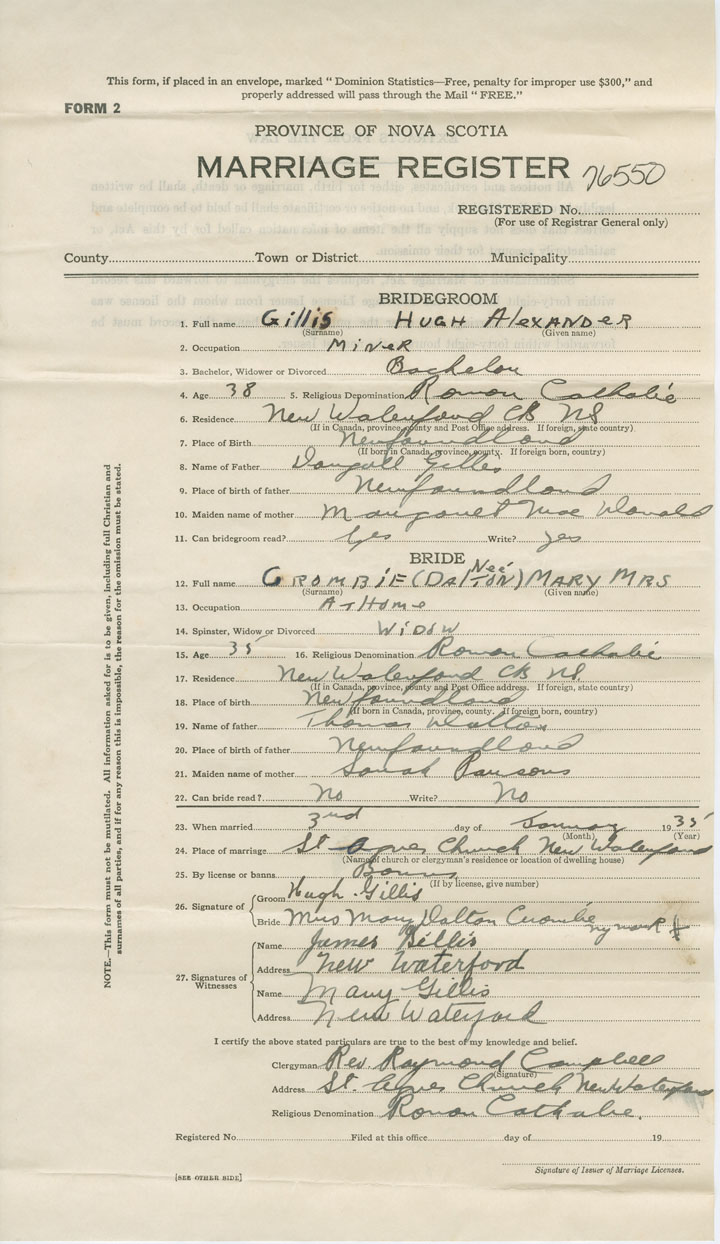 This form, if placed in an envelope, marked " Dominion Statistics—Free, penalty for improper use $300," and
properly addressed will pass through the Mail " FREE."
FORM 2
PROVINCE OF NOVA SCOTIA
MARRIAGE REGISTER 76550
REGISTERED No.
(For use of Registrar General only)
County Town or District Municipality
BRIDEGROOM
1. Full name Gillis Hugh Alexander
(Surname) (Given name)
2. Occupation Miner
3. Bachelor, Widower or Divorced Bachelor
4. Age 38 5. Religious Denomination Roman Catholic
6. Residence New Waterford CB NS
(If in Canada, province, county and Post Office address. If foreign, state country)
7. Place of Birth Newfoundland
(If born in Canada, province, county. If foreign born, country)
8. Name of Father Dougall Gillis
9. Place of birth of father Newfoundland
10. Maiden name of mother Margaret Mac Donald
11. Can bridegroom read? Yes Write? yes
BRIDE
12. Full name Crombie (Neé Dalton) Mary Mrs
(Surname) (Given name)
13. Occupation At Home
14. Spinster, Widow or Divorced Widow
15. Age 35 16. Religious Denomination Roman Catholic
17. Residence New Waterford CB NS.
(If in Canada, province, county and Post Office address. If foreign, state country)
18. Place of birth Newfoundland
(If born in Canada, province, county. If foreign born, country)
19. Name of father Thomas Dalton
20. Place of birth of father Newfoundland
21. Maiden name of mother Sarah Parsons
22. Can bride read? No Write? No
23. When married 3rd day of January 1935
(Month) (Year)
24. Place of marriage St Agnes Church New Waterford
(Name of church or clergyman's residence or location of dwelling house)
25. By license or banns Banns
(If by license, give number)
26. Signature of Groom Hugh Gillis
Bride Mrs Mary Dalton Crombie my mark
27. Signatures of Witnesses
Name James Gillis
Address New Waterford
Name Mary Gillis
Address New Waterford
I certify the above stated particulars are true to the best of my knowledge and belief.
Clergyman Rev. Raymond Campbell
(Signature)
Address St. Agnes Church New Waterford
Religious Denomination Roman Catholic.
Registered No. Filed at this office day of 19
Signature of Issuer of Marriage Licenses.
[SEE OTHER SIDE]
NOTE.—This form must not be mutilated. All information asked for is to be given, including full Christian and
surnames of all parties, and if for any reason this is impossible, the reason for the omission must be stated.